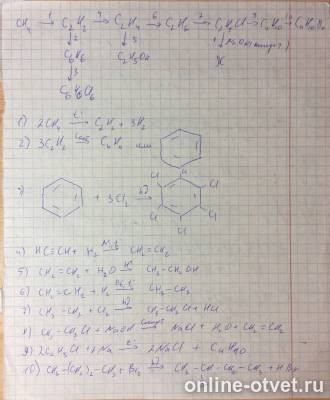 CH₄ →¹ C₂H₂ →⁴ C₂H₄ →⁶ C₂H₆ →⁷ C₂H₅Cl →⁹ C₄H₁₀ → C₄H₉Br
↓2 ↓5 ↓ + NaOH
C₆H₆ C₂H₅OH X
↓3
C₆H₆Cl₆
1) 2CH₄ →t° C₂H₂ + 3H₂
2) 3C₂H₂ → C₆H₆ или
3) + 3Cl₂ →hν Cl Cl Cl Cl Cl Cl
4) HC≡CH + H₂ → CH₂=CH₂
5) CH₂=CH₂ + H₂O →H⁺ CH₃-CH₂OH
6) CH₂=CH₂ + H₂ → CH₃-CH₃
7) CH₃-CH₃ + Cl₂ →hν CH₃-CH₂Cl + HCl
8) CH₃-CH₂Cl + NaOH →спирт NaCl + H₂O + CH₂=CH₂
9) 2C₂H₅Cl + 2Na →t° 2NaCl + C₄H₁₀
10) CH₃-(CH₂)₂-CH₃ + Br₂ →hν CH₃-CH-CH₂-CH₃ + HBr
online-otvet.ru